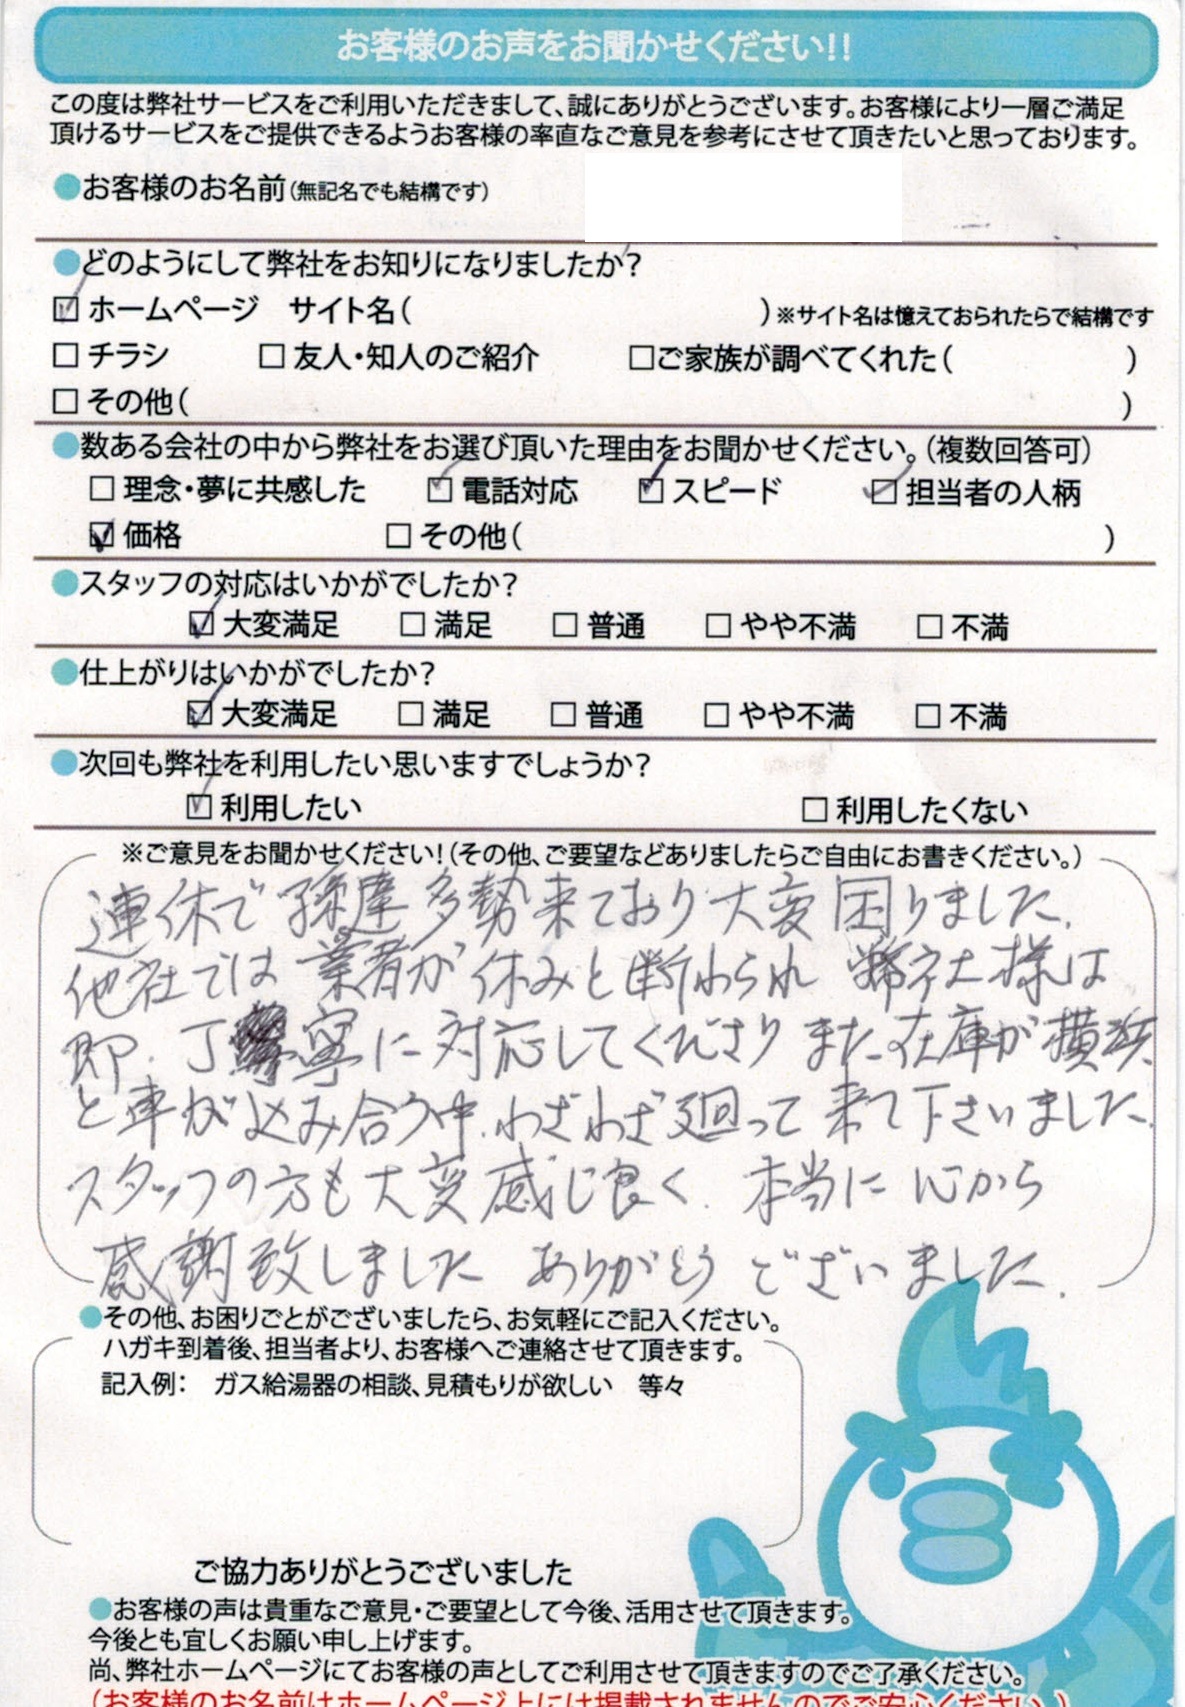 お客様のお声をお聞かせください!!
この度は弊社サービスをご利用いただきまして、誠にありがとうございます。お客様により一層ご満足
頂けるサービスをご提供できるようお客様の率直なご意見を参考にさせて頂きたいと思っております。
●お客様のお名前(無記名でも結構です)
●どのようにして弊社をお知りになりましたか?
☑ ホームページ サイト名( )※サイト名は憶えておられたらで結構です
□ チラシ □ 友人・知人のご紹介 □ご家族が調べてくれた( )
□ その他( )
●数ある会社の中から弊社をお選び頂いた理由をお聞かせください。(複数回答可)
□ 理念・夢に共感した ☑ 電話対応 ☑ スピード ☑ 担当者の人柄
☑ 価格 □ その他( )
●スタッフの対応はいかがでしたか?
☑ 大変満足 □ 満足 □ 普通 □ やや不満 □ 不満
●仕上がりはいかがでしたか?
☑ 大変満足 □ 満足 □ 普通 □ やや不満 □ 不満
●次回も弊社を利用したい思いますでしょうか?
☑ 利用したい □ 利用したくない
※ご意見をお聞かせください!(その他、ご要望などありましたらご自由にお書きください。)
連休で孫達多勢来ており大変困りました.
他社では業者が休みと断わられ 弊社様は
即.丁寧に対応してくださりまた在庫が横浜
と車が込み合う中.わざわざ廻って来て下さいました.
スタッフの方も大変感じ良く.本当に心から
感謝致しました ありがとうございました.
●その他、お困りごとがございましたら、お気軽にご記入ください。
ハガキ到着後、担当者より、お客様へご連絡させて頂きます。
記入例: ガス給湯器の相談、見積もりが欲しい 等々
ご協力ありがとうございました
●お客様の声は貴重なご意見・ご要望として今後、活用させて頂きます。
今後とも宜しくお願い申し上げます。
尚、弊社ホームページにてお客様の声としてご利用させて頂きますのでご了承ください。
(お客様のお名前はホームページ上には掲載されませんのでご安心ください。)